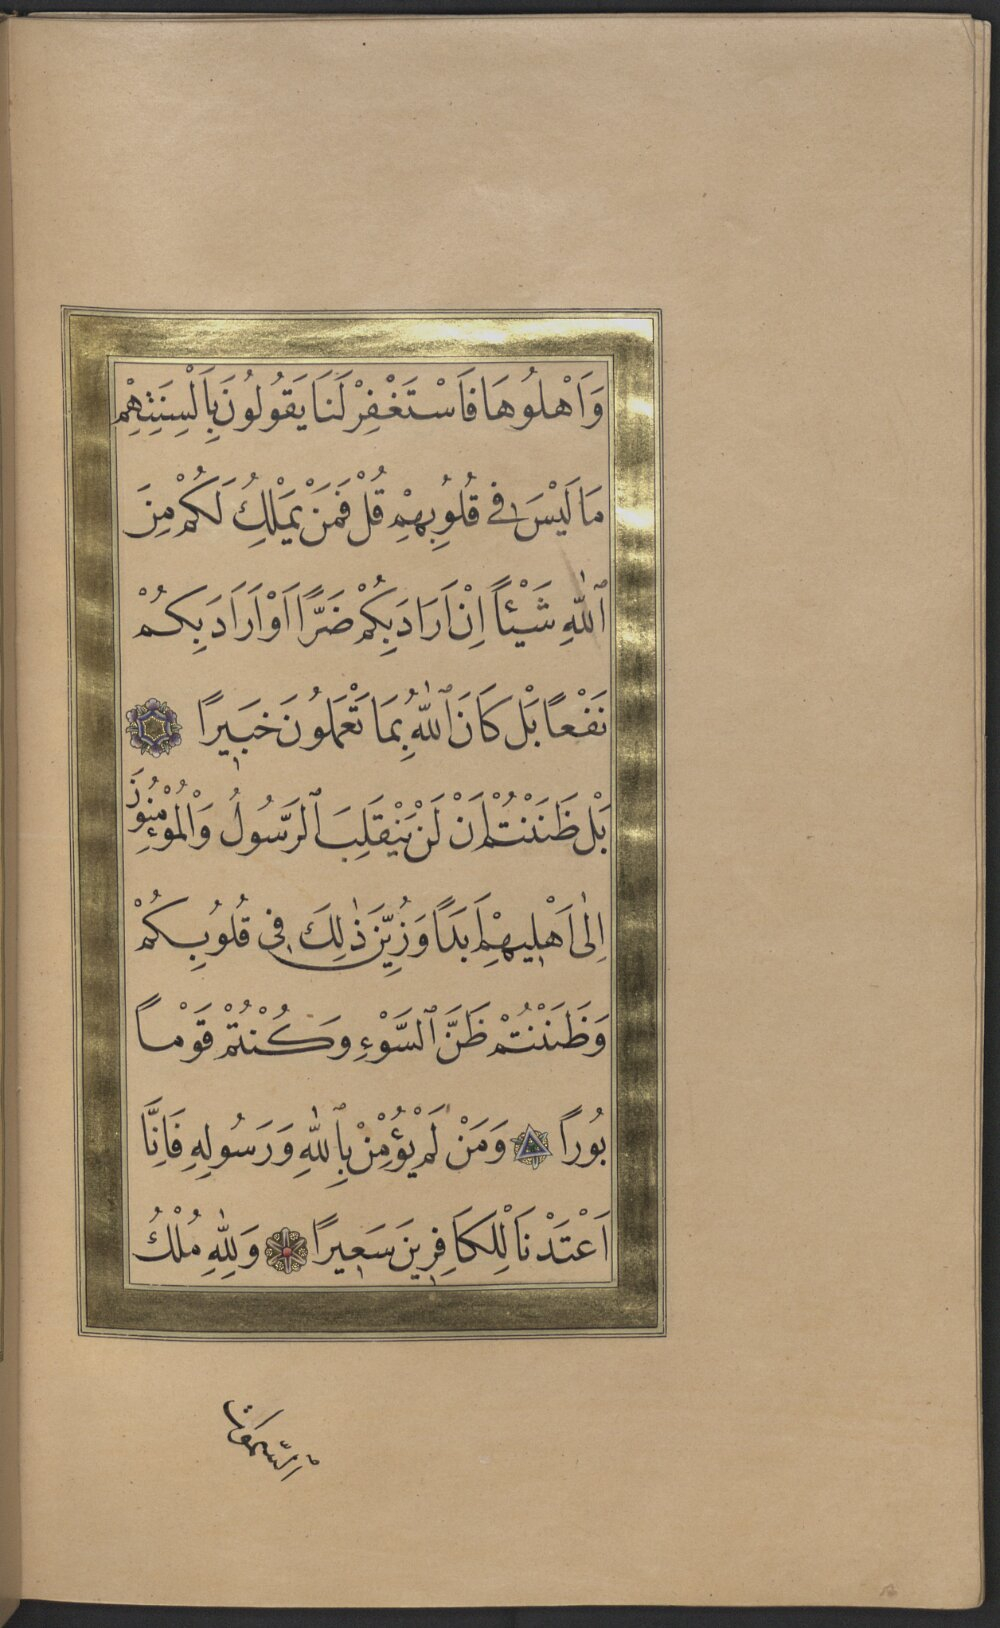 وَاَهْلُوهَا فَاسْتَغْفِرْ لَنَا يَقُولُونَ بِاَلْسِنَتِهِمْ
مَا لَيْسَ فِي قُلُوبِهِمْ قُلْ فَمَنْ يَمْلِكُ لَكُمْ مِنَ
ٱللّٰهِ شَيْئًا اِنْ اَرَادَ بِكُمْ ضَرًّا اَوْ اَرَادَ بِكُمْ
نَفْعًا بَلْ كَانَ ٱللّٰهُ بِمَا تَعْمَلُونَ خَبِيرًا
بَلْ ظَنَنْتُمْ اَنْ لَنْ يَنْقَلِبَ ٱلرَّسُولُ وَالْمُؤْمِنُونَ
اِلٰى اَهْلِيهِمْ اَبَدًا وَزُيِّنَ ذٰلِكَ فِي قُلُوبِكُمْ
وَظَنَنْتُمْ ظَنَّ ٱلسَّوْءِ وَكُنْتُمْ قَوْمًا
بُورًا وَمَنْ لَمْ يُؤْمِنْ بِٱللّٰهِ وَرَسُولِهِ فَاِنَّا
اَعْتَدْنَا لِلْكَافِرِينَ سَعِيرًا وَلِلّٰهِ مُلْكُ
السَّمٰوَات